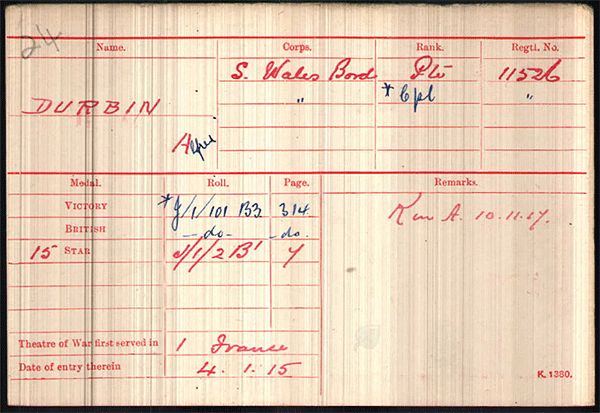 24
Name. Corps. Rank. Regtl. No.
S. Wales Bord Pte 11526
" * Cpl "
DURBIN
Medal. Roll. Page. Remarks.
VICTORY * J/1/101 B3 314
BRITISH -do- -do-
15 STAR J/1/2 B' K in A. 10.11.17.
Theatre of War first served in 1 France
Date of entry therein 4. 1. 15
K. 1380.